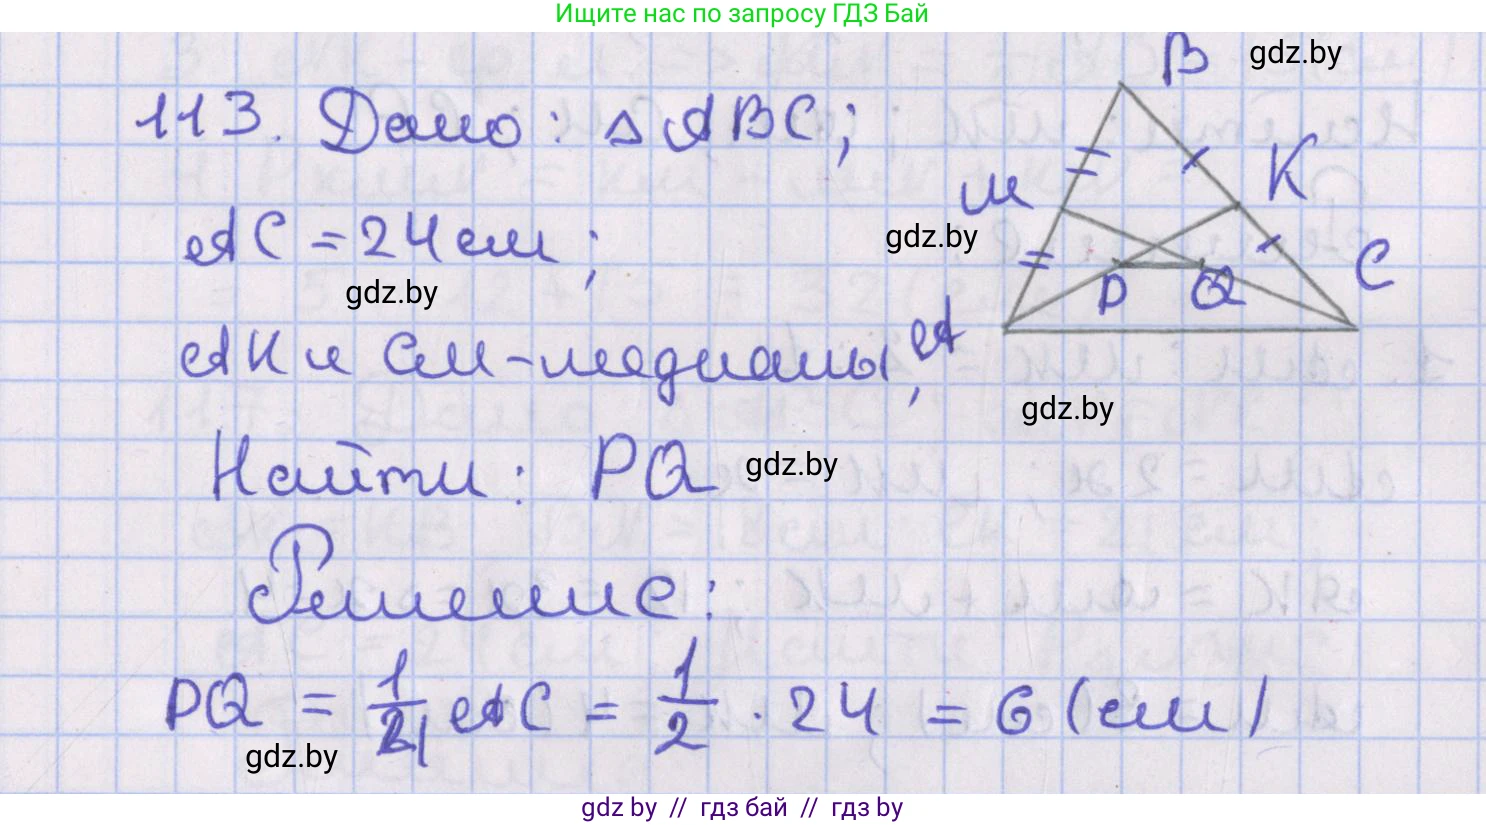 Ищите нас по запросу ГДЗ Бай
B
gdz.by
113. Дано: △ABC;
M
K
AC = 24 см;
gdz.by
C
gdz.by
P Q
AK и CM - медианы,
A
gdz.by
Найти: PQ
gdz.by
Решение:
PQ = 1/4 AC = 1/2 · 24 = 6 (см)
gdz.by
gdz by // гдз бай // гдз by